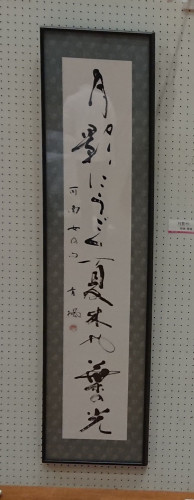 月影にうごく夏木や葉の光
可南女の句